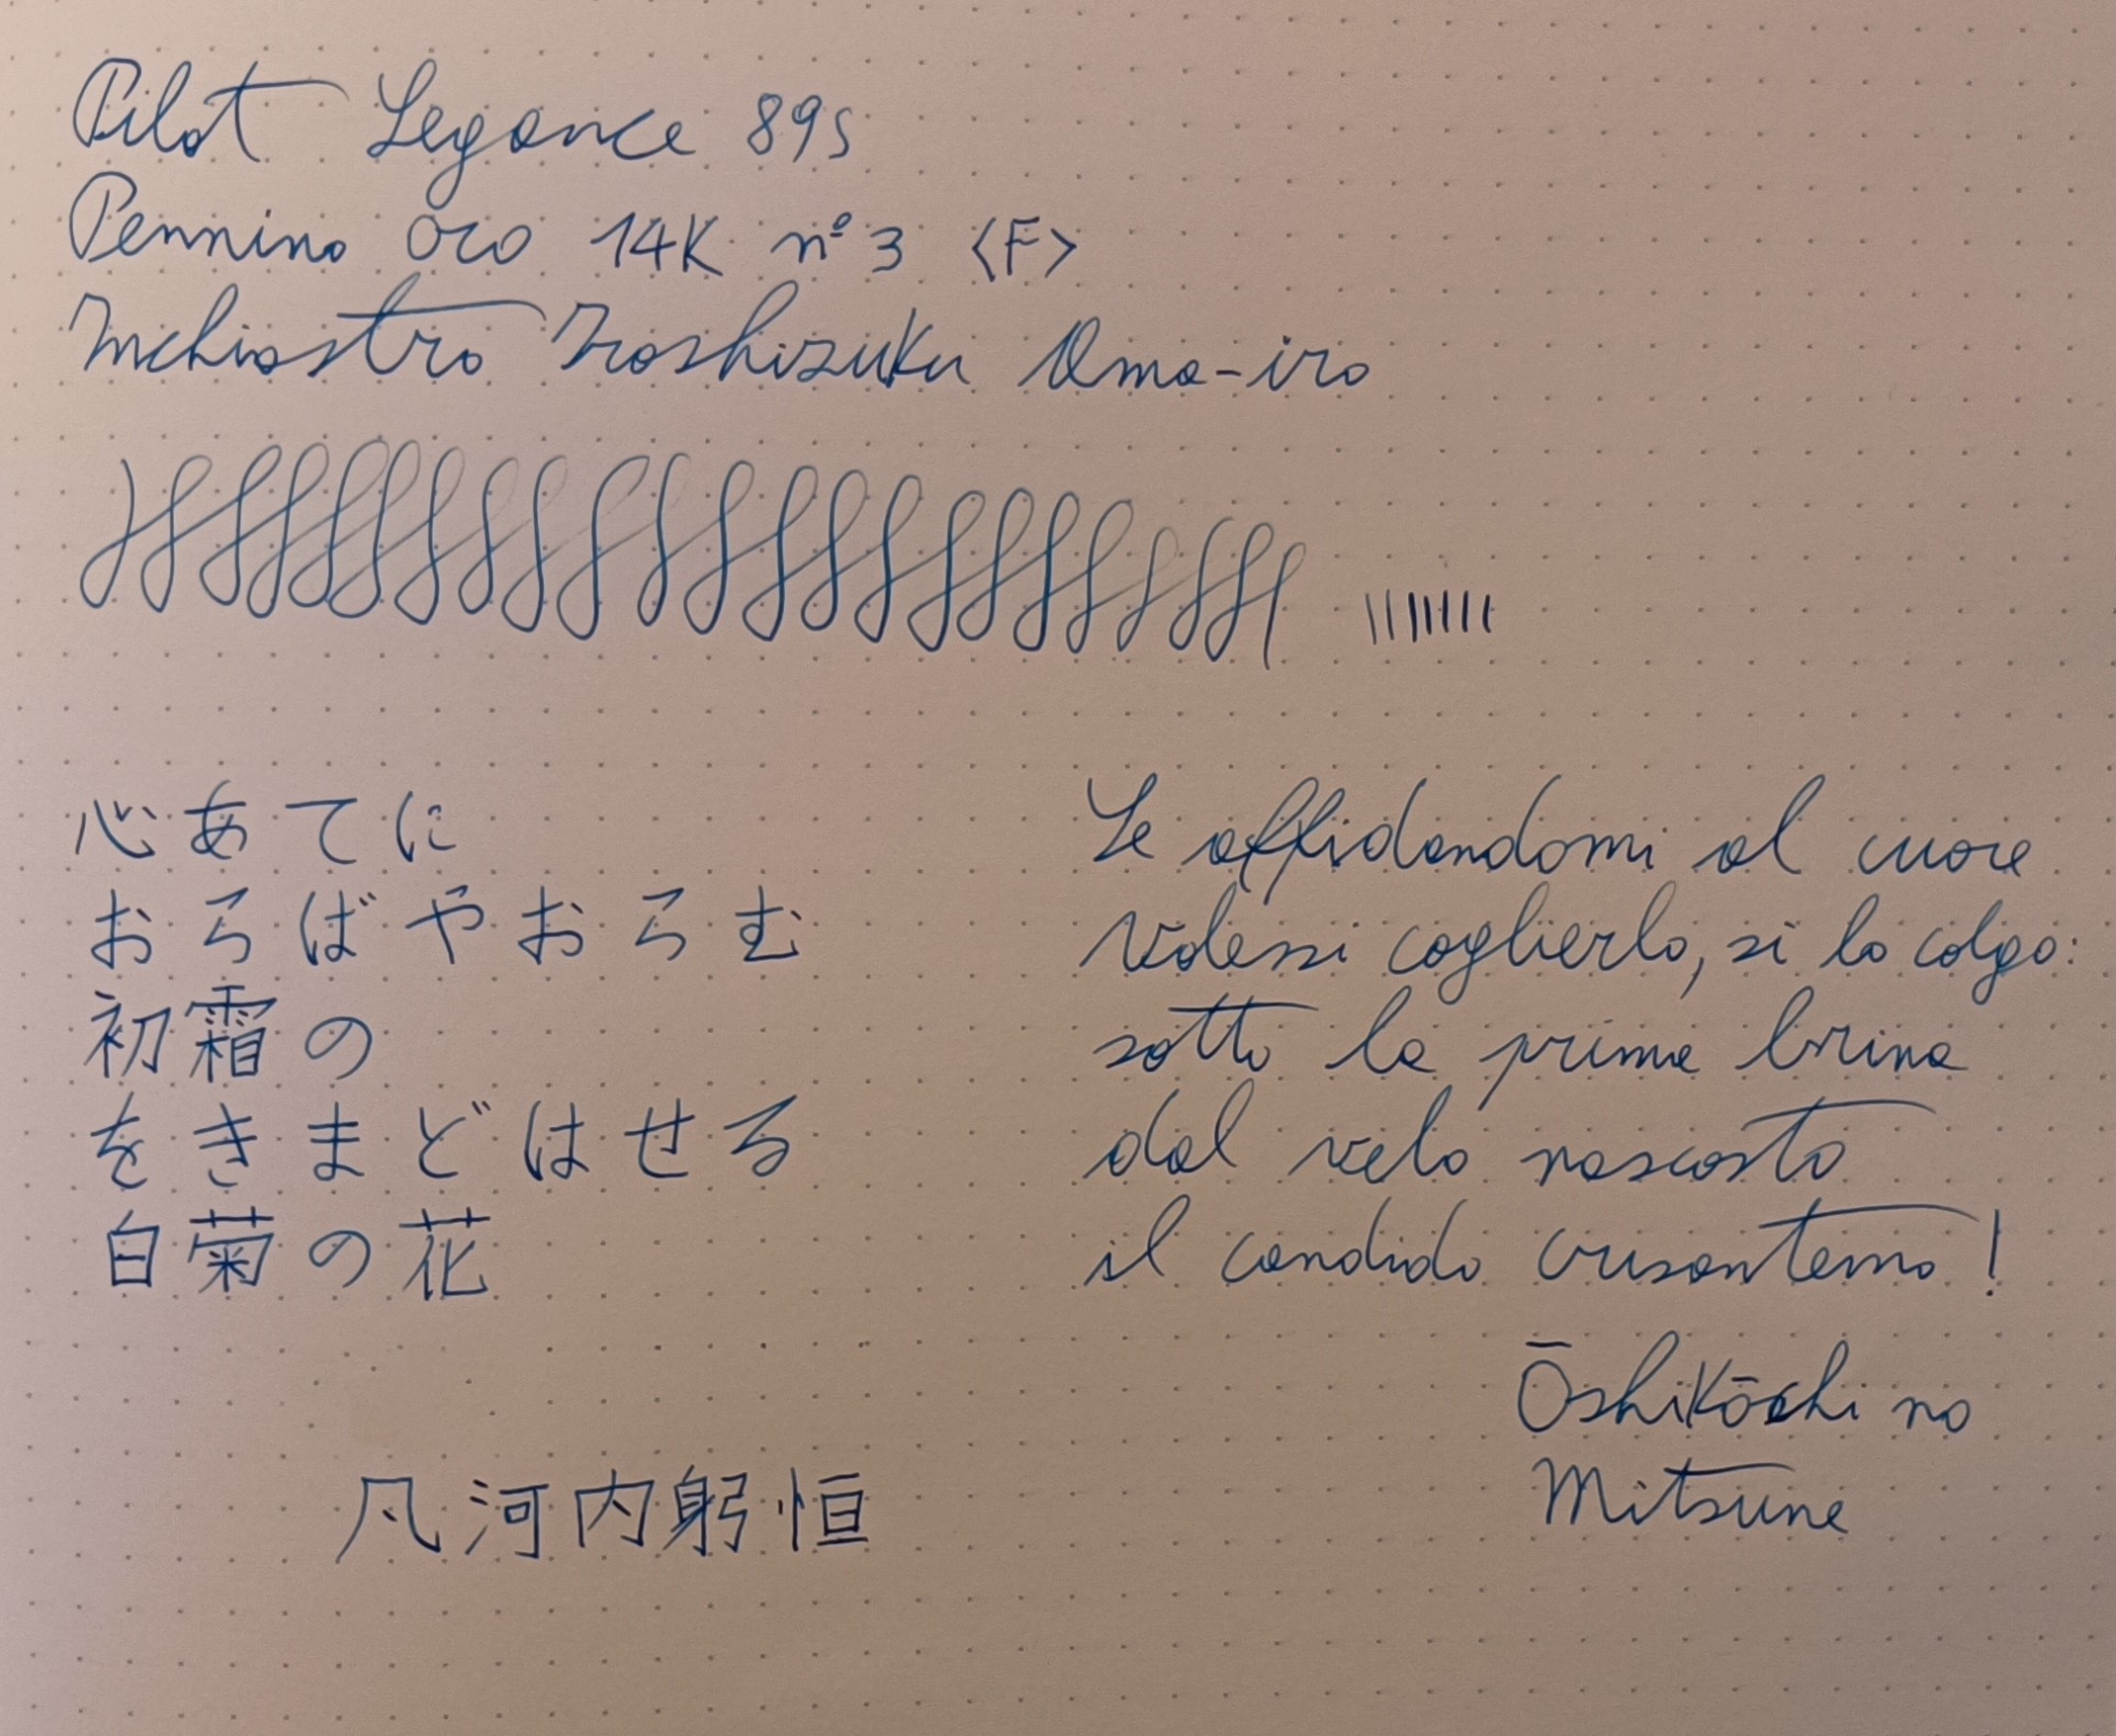 Pilot Legance 89s
Pennino oro 14K n° 3 <F>
Inchiostro Iroshizuku Ama-iro
心あてに
おらばやおらむ
初霜の
をきまどはせる
白菊の花
凡河内躬恒
Se affidandomi al cuore
volessi coglierlo, sì lo colgo:
sotto la prima brina
dal velo nascosto
il candido crisantemo!
Ōshikōchi no
Mitsune